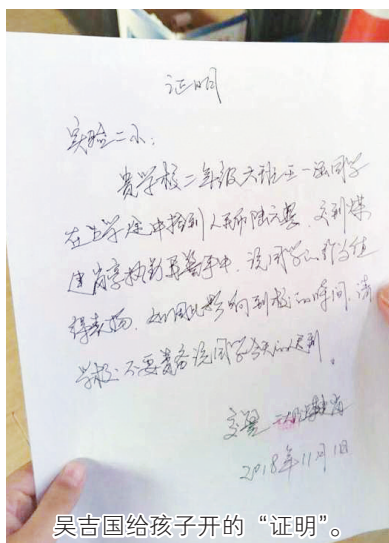 证明
实验二小：
贵学校二年级六班王一涵同学
在上学途中捡到人民币陆元整，交到
执勤民警手中，该同学的行为值
得表扬，如因此影响到校的时间，请
学校不要责备该同学今天的迟到。
交警
2018年11月1日
吴吉国给孩子开的“证明”。